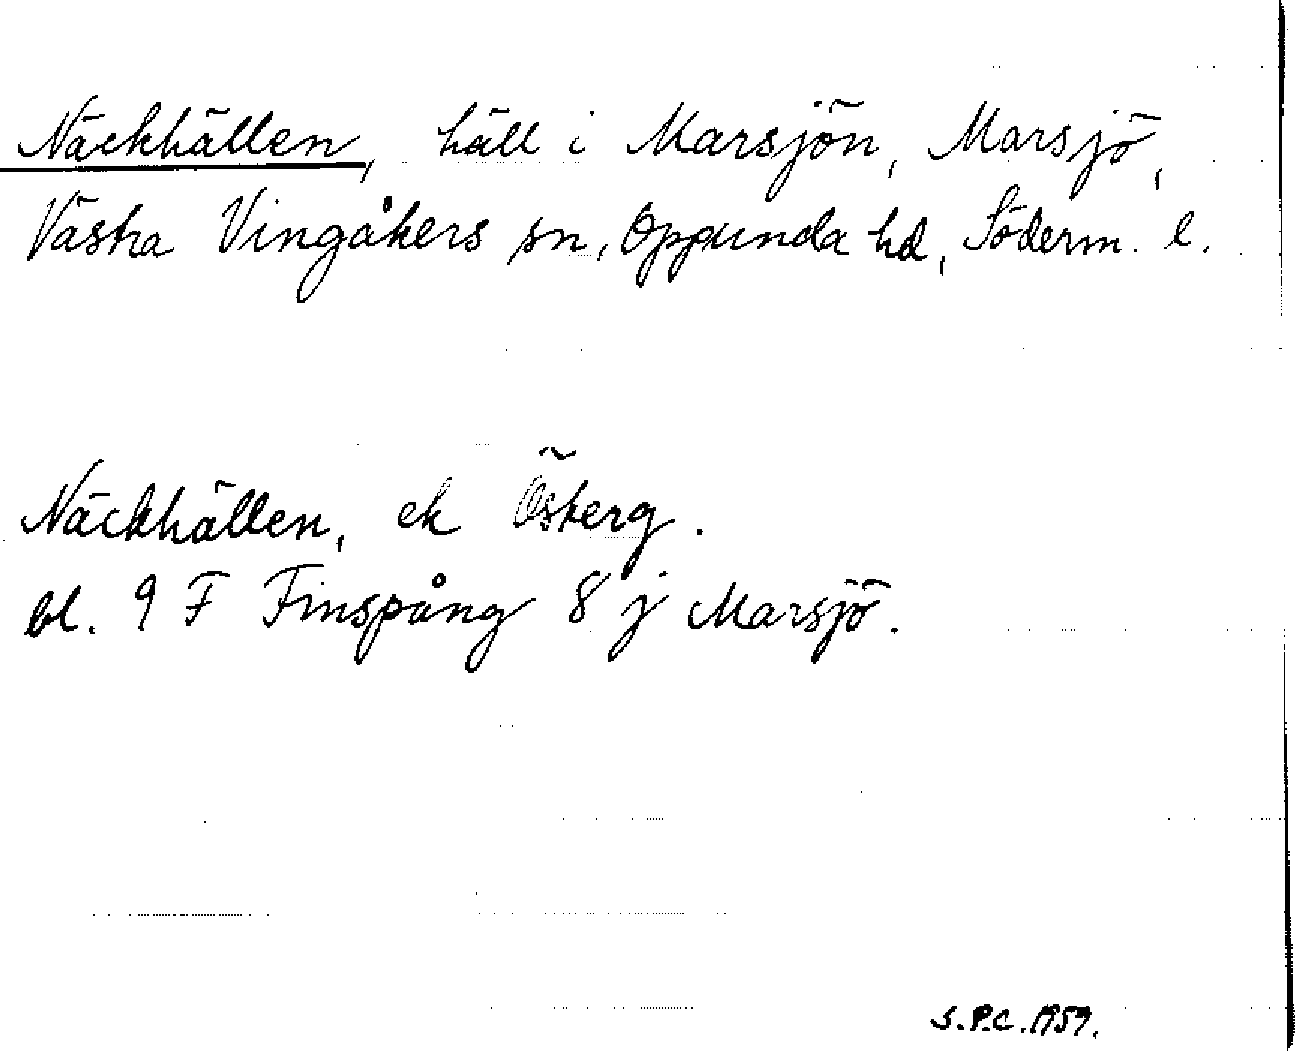 Näckhällen, häll i Marsjön, Marsjö,
Västra Vingåkers sn, Oppunda hd, Söderm. l.
Näckhällen, ek Österg.
bl. 9 F Finspång 8 j Marsjö.
S.P.C. 1959.